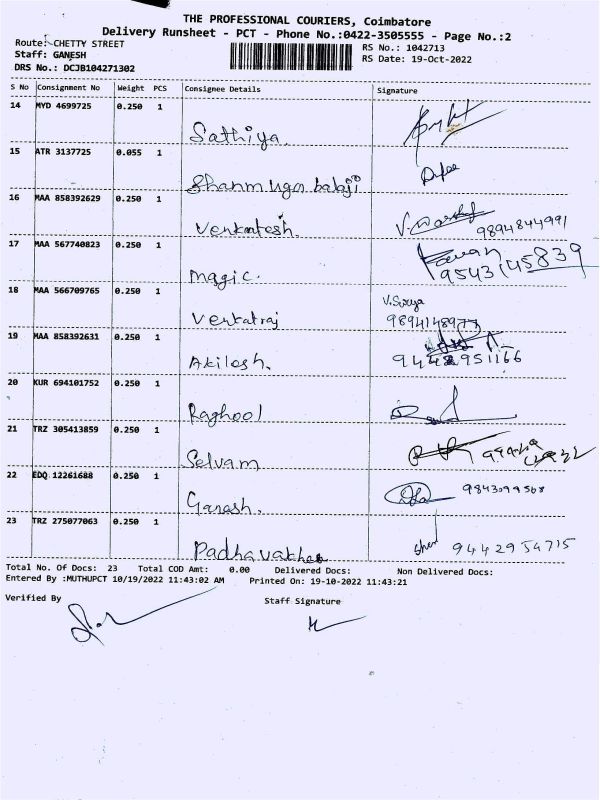 THE PROFESSIONAL COURIERS, Coimbatore
Delivery Runsheet - PCT - Phone No.:0422-3505555 - Page No.:2
Route: CHETTY STREET
RS No.: 1042713
Staff: GANESH
RS Date: 19-Oct-2022
DRS No.: DCJB104271302
S No Consignment No Weight PCS Consignee Details Signature
14 MYD 4699725 0.250 1
Sathiya.
15 ATR 3137725 0.055 1
Shanmuga balaji
16 MAA 858392629 0.250 1
Venkatesh. 9894844991
17 MAA 567740823 0.250 1
Magic. 9543145839
18 MAA 566709765 0.250 1
V.Surya
Venkatraj 9894148977
19 MAA 858392631 0.250 1
Akilesh. 9442951166
20 KUR 694101752 0.250 1
Raghool
21 TRZ 305413859 0.250 1
Selvam
22 EDQ 12261688 0.250 1
Ganesh.
23 TRZ 275077063 0.250 1
9442954715
Total No. Of Docs: 23 Total COD Amt: 0.00 Delivered Docs: Non Delivered Docs:
Entered By :MUTHUPCT 10/19/2022 11:43:02 AM Printed On: 19-10-2022 11:43:21
Verified By
Staff Signature